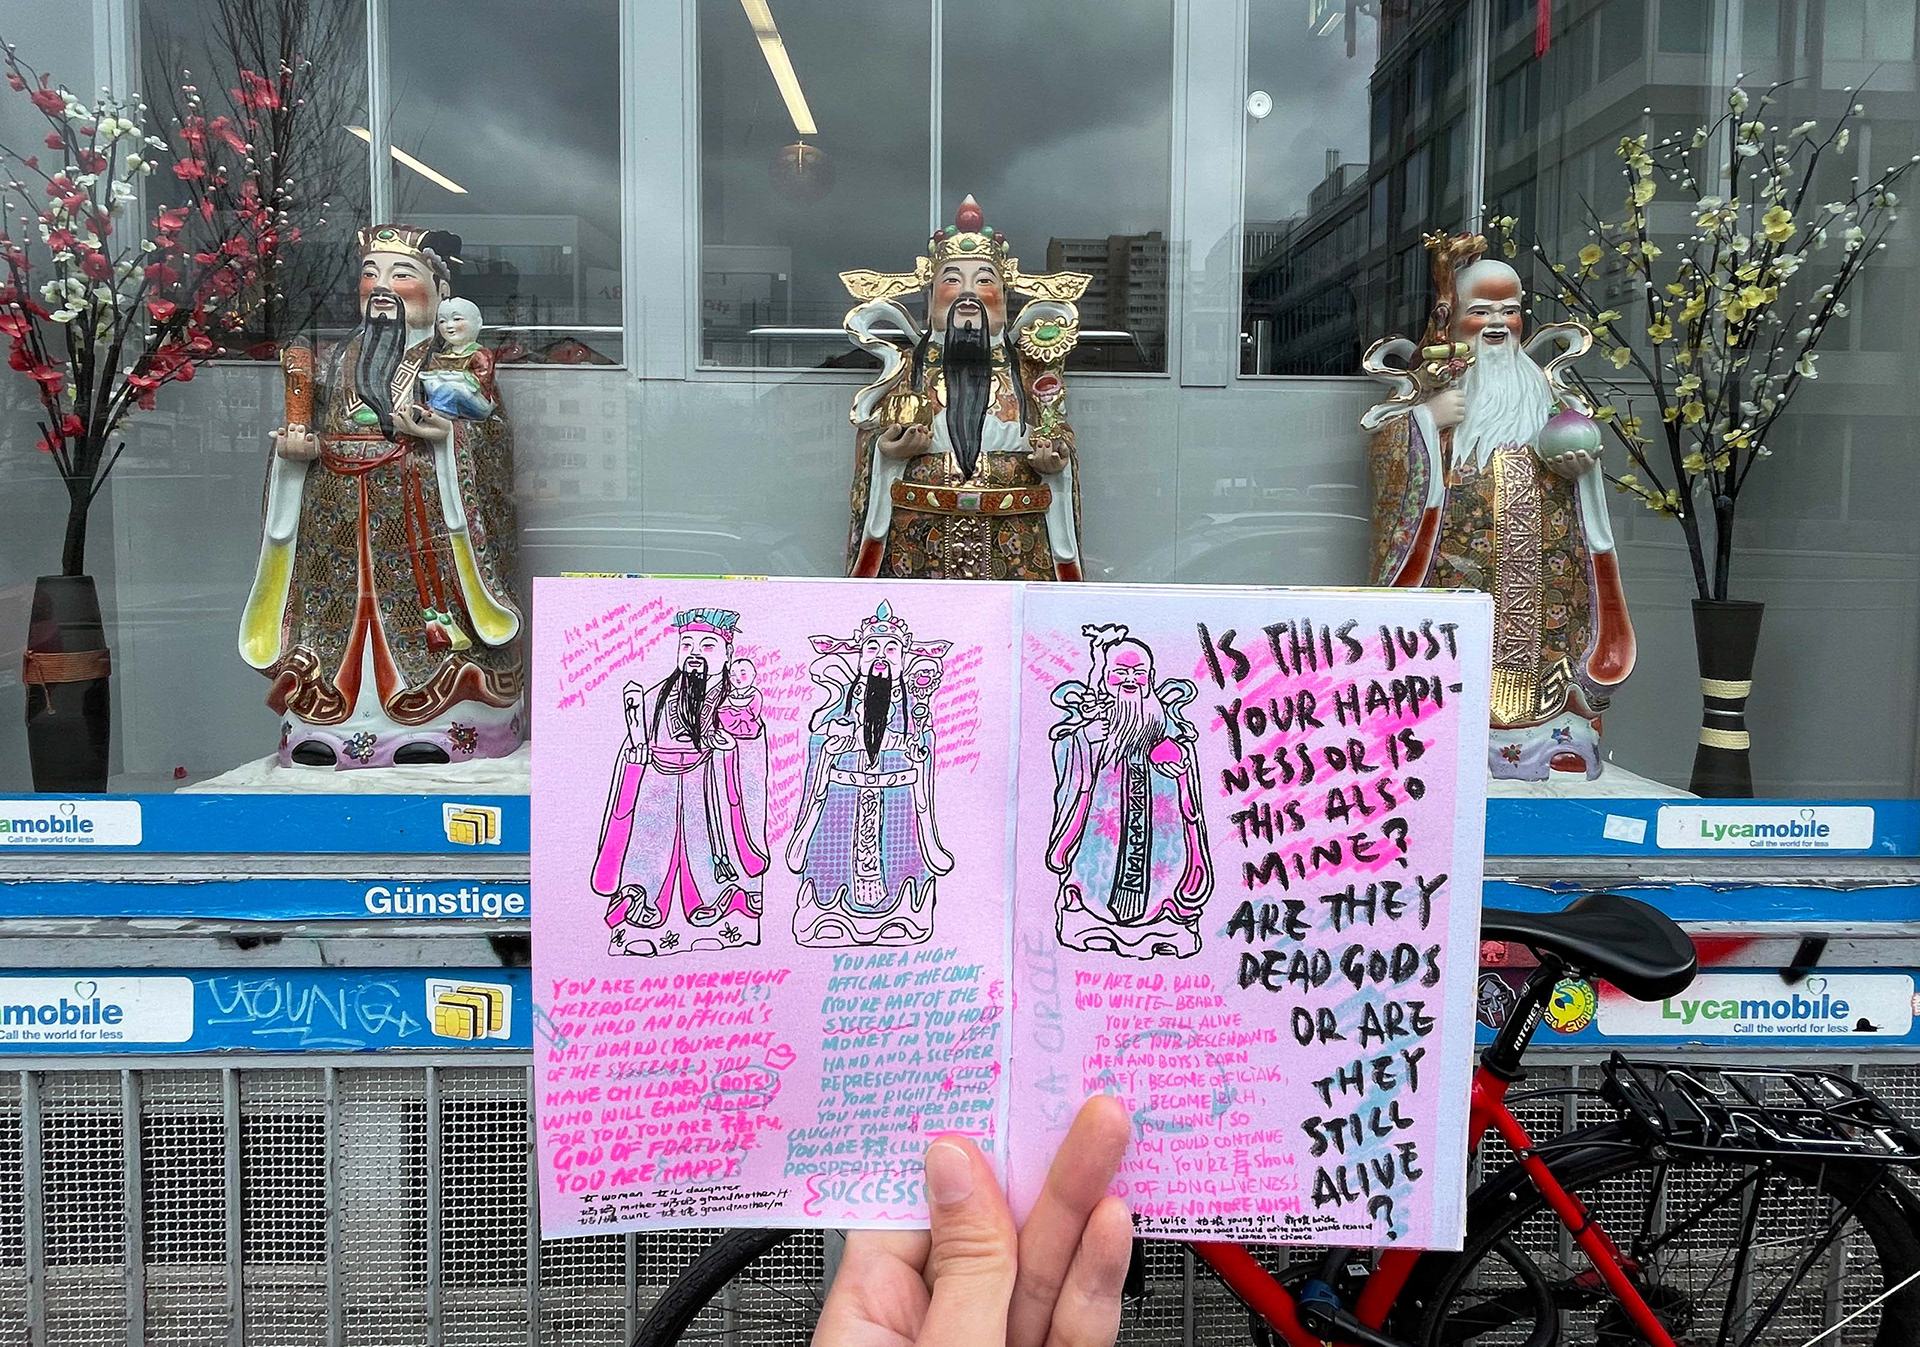 It's all about
family and money
I earn money for them
they earn money for me
BOYS
BOYS
BOYS BOYS
ONLY BOYS
MATTER
Money
Money
Money
Money
YOU ARE AN OVERWEIGHT
HETEROSEXUAL MAN(S?)
YOU HOLD AN OFFICIAL'S
HAT BOARD (YOU'RE PART
OF THE SYSTEM!) YOU
HAVE CHILDREN (BOYS!)
WHO WILL EARN MONEY
FOR YOU. YOU ARE 福 FU,
GOD OF FORTUNE.
YOU ARE HAPPY.
女 woman 女儿 daughter
妈妈 mother 奶奶 grandmother/f
aunt 姥姥 grandmother/m
for money
for money
YOU ARE A HIGH
OFFICIAL OF THE COURT.
(YOU'RE PART OF THE
SYSTEM!) YOU HOLD
MONEY IN YOU LEFT
HAND AND A SCEPTER
REPRESENTING
IN YOUR RIGHT HAND.
YOU HAVE NEVER BEEN
CAUGHT TAKING BRIBES!
YOU ARE 禄 (LU)
PROSPERITY.
SUCCESS
IS A CIRCLE
YOU ARE OLD, BALD,
AND WHITE-BEARD.
YOU'RE STILL ALIVE
TO SEE YOUR DESCENDANTS
(MEN AND BOYS) EARN
MONEY, BECOME OFFICIALS,
BECOME RICH,
YOU MONEY SO
YOU COULD CONTINUE
YOU'RE 寿 Shou,
OF LONGLIVENESS
HAVE NO MORE WISH
wife 姑娘 young girl 新娘 bride
if there's more space I could write more words related
to women in Chinese.
IS THIS JUST
YOUR HAPPI-
NESS OR IS
THIS ALSO
MINE?
ARE THEY
DEAD GODS
OR ARE
THEY
STILL
ALIVE
?
amobile
Call the world for less
Lycamobile
Call the world for less
Günstige
amobile
Call the world for less
YOUNG
RITCHEY
Lycamobile
Call the world for less